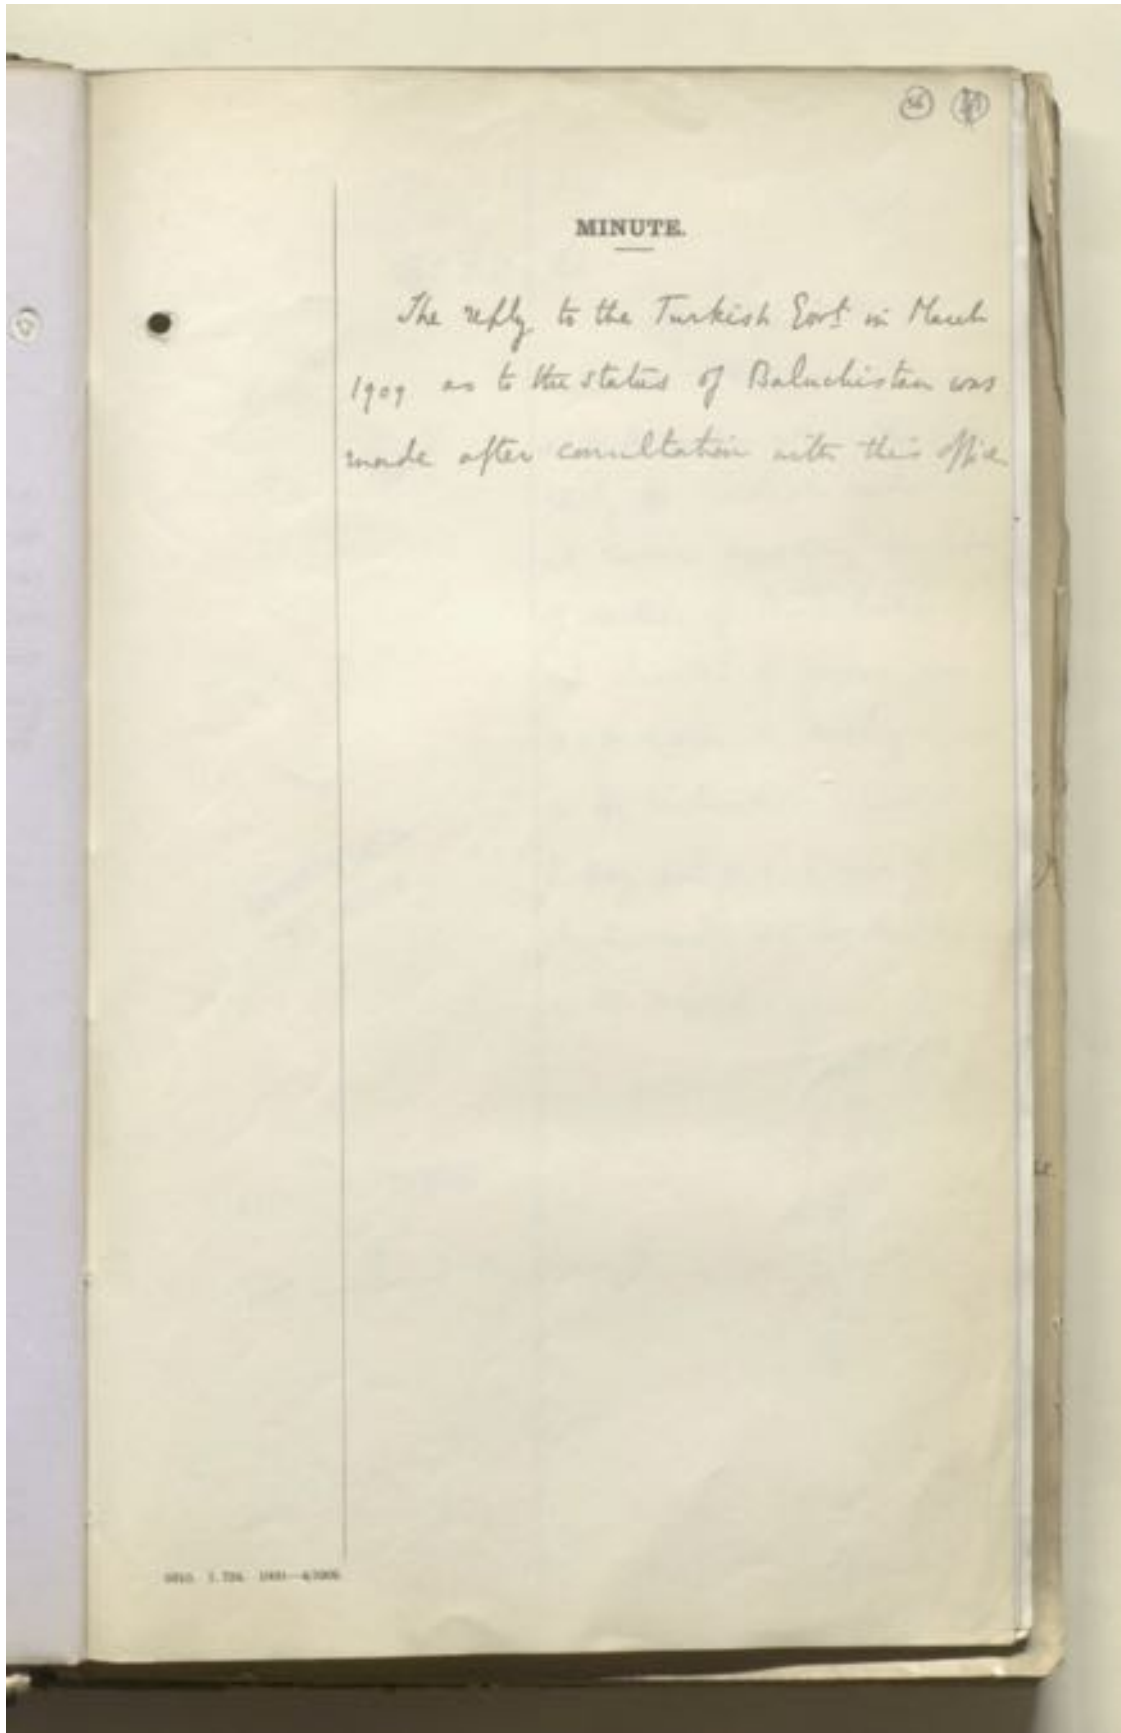 56
MINUTE.
The reply to the Turkish Govt in March
1909 as to the status of Baluchistan was
made after consultation with this office